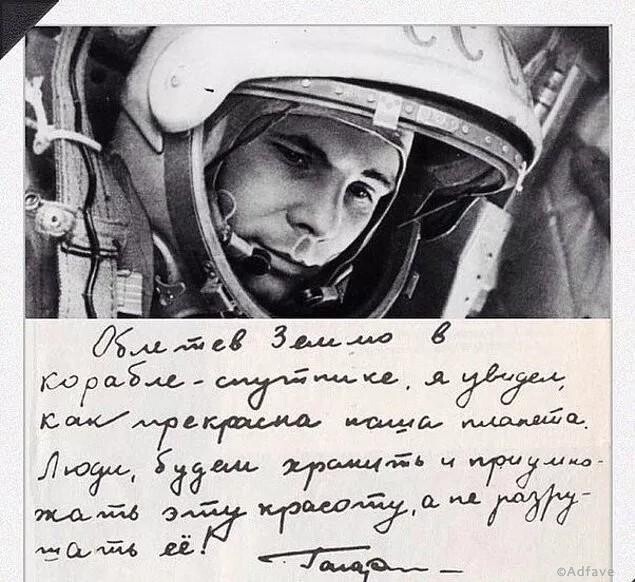 СС
Облетев Землю в
корабле-спутнике, я увидел,
как прекрасна наша планета.
Люди, будем хранить и приумно-
жать эту красоту, а не разру-
шать её!
Гагарин
©Adfave